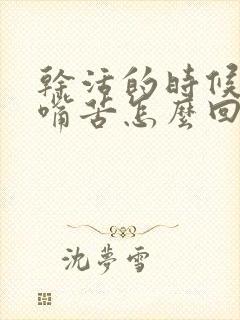 幹活的時候
嘴苦怎麼回
沈夢雪